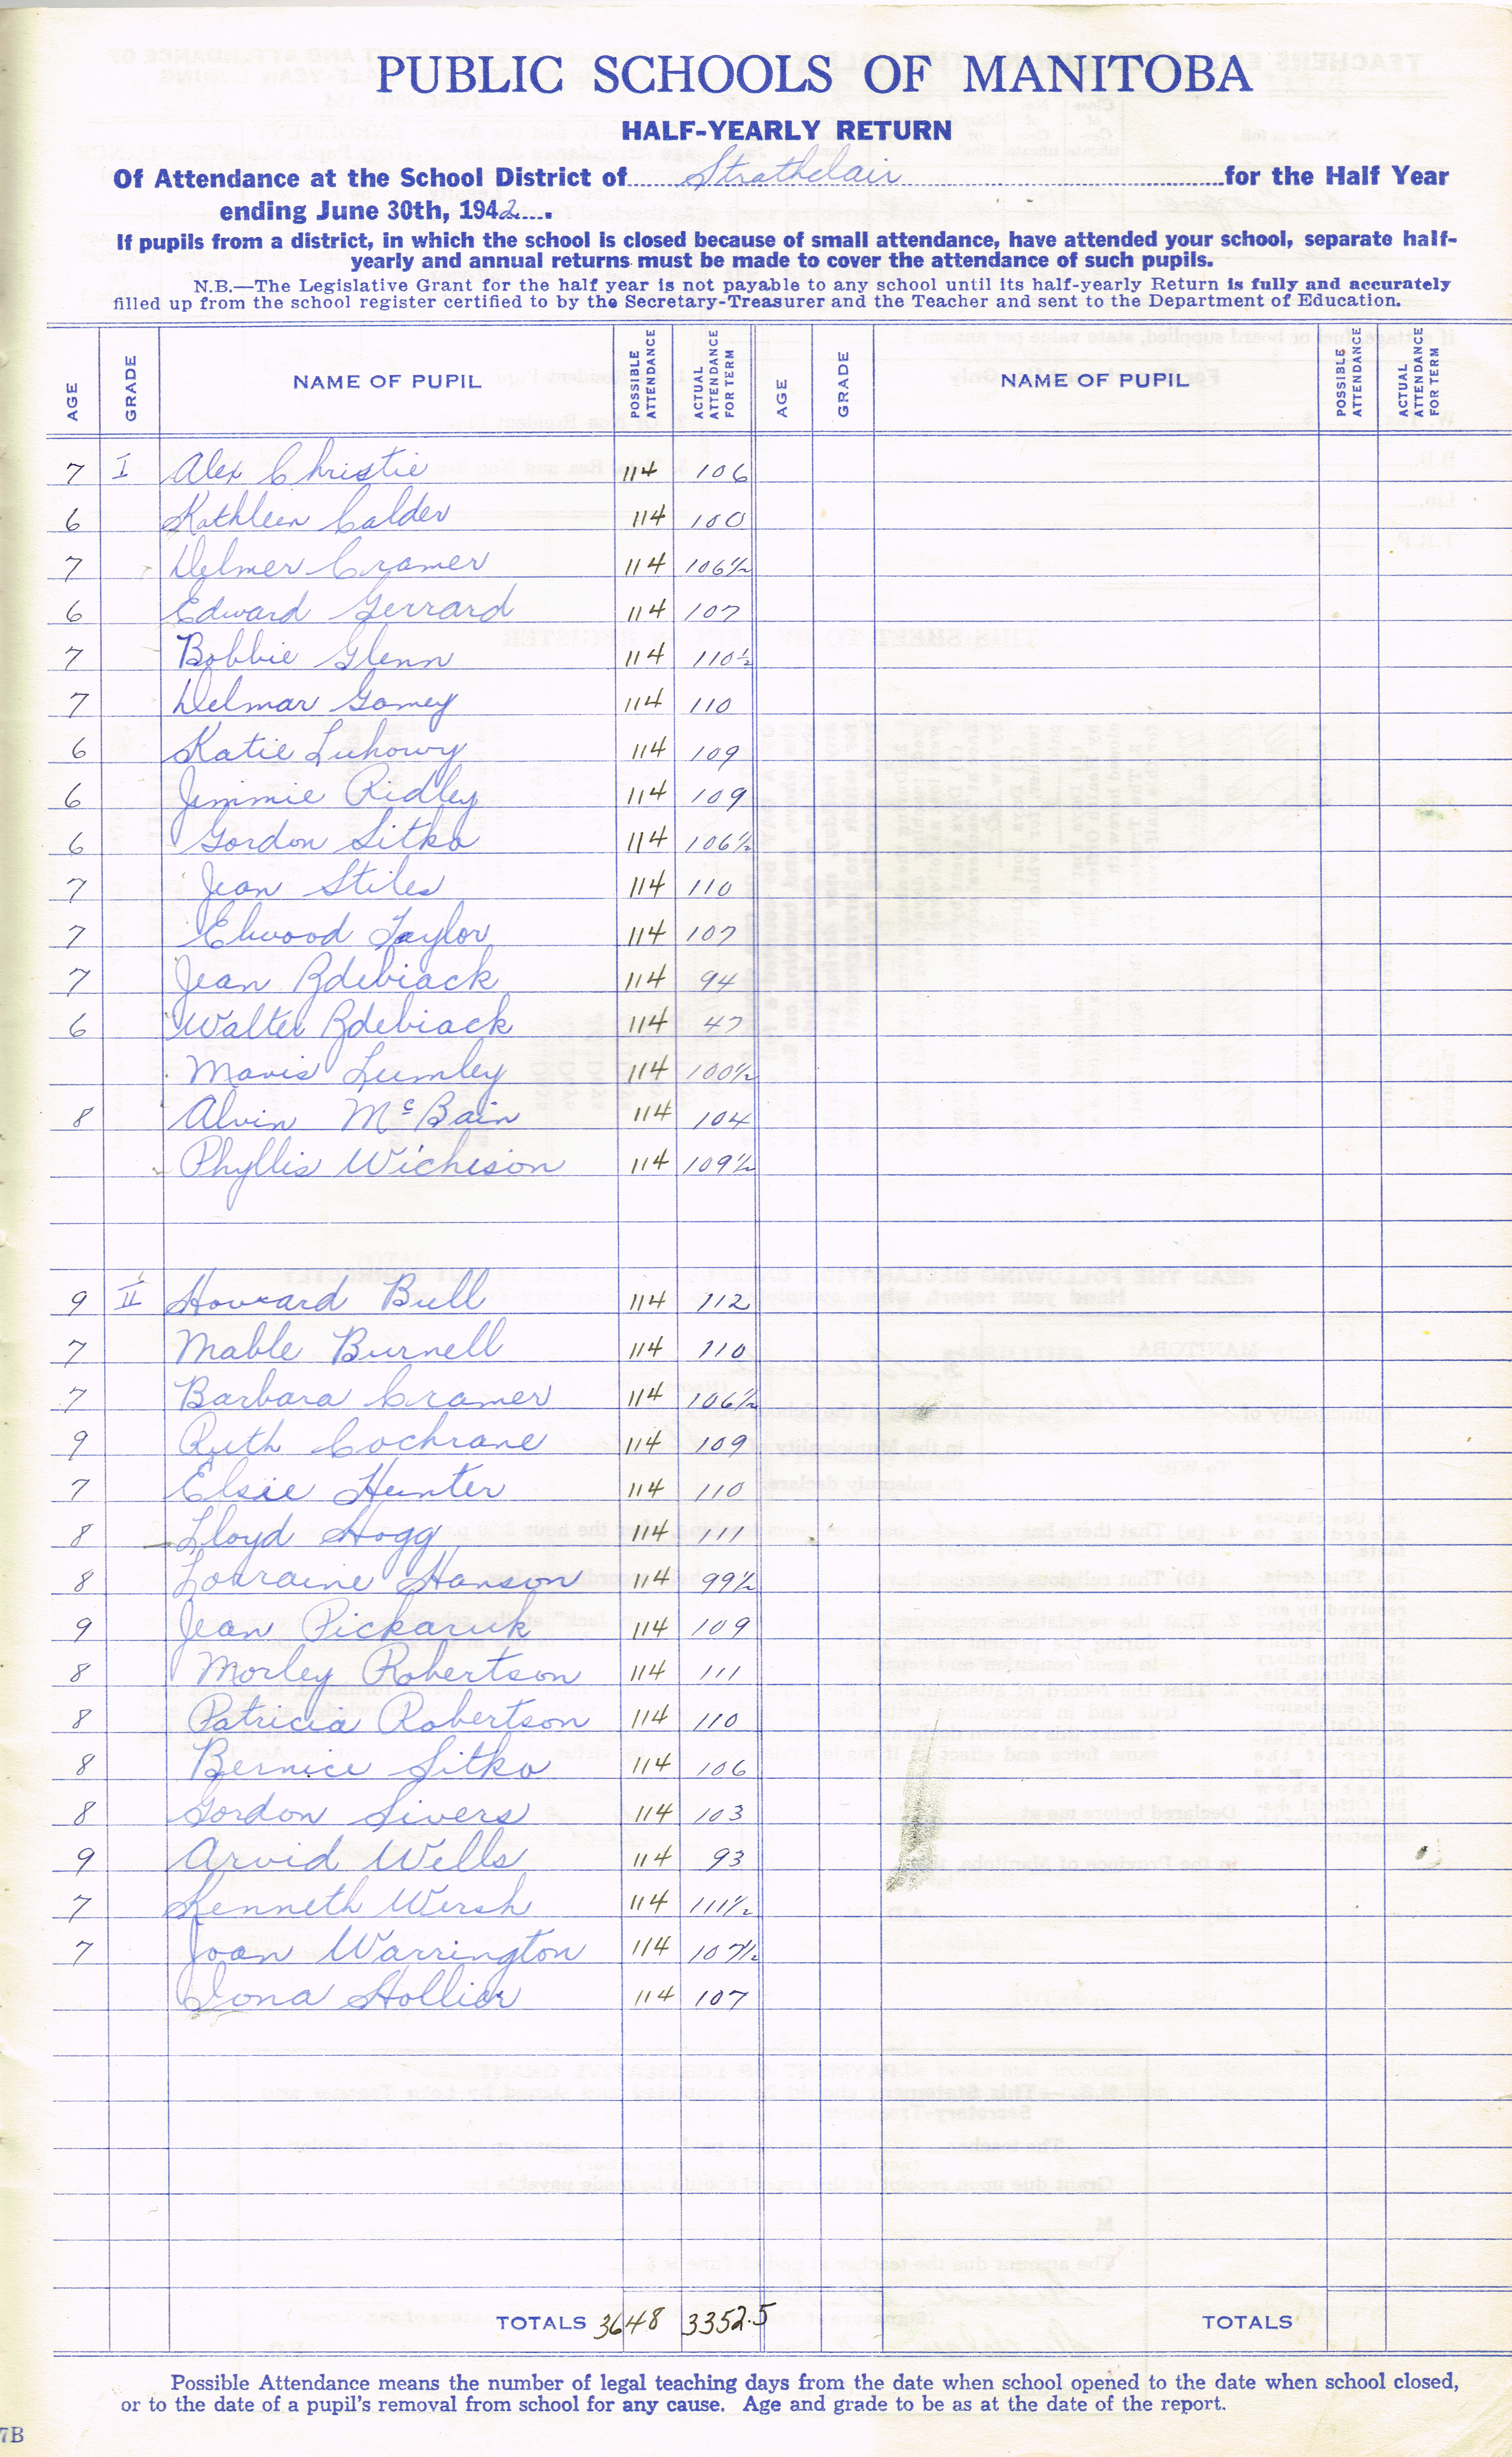 PUBLIC SCHOOLS OF MANITOBA
HALF-YEARLY RETURN
Of Attendance at the School District of Strathclair for the Half Year
ending June 30th, 1942
If pupils from a district, in which the school is closed because of small attendance, have attended your school, separate half-
yearly and annual returns must be made to cover the attendance of such pupils.
N.B.—The Legislative Grant for the half year is not payable to any school until its half-yearly Return is fully and accurately
filled up from the school register certified to by the Secretary-Treasurer and the Teacher and sent to the Department of Education.
AGE GRADE NAME OF PUPIL POSSIBLE ATTENDANCE ACTUAL ATTENDANCE FOR TERM AGE GRADE NAME OF PUPIL POSSIBLE ATTENDANCE ACTUAL ATTENDANCE FOR TERM
7 I Alex Christie 114 106
6 Kathleen Calder 114 100
7 Delmer Cramer 114 106½
6 Edward Gerrard 114 107
7 Bobbie Glenn 114 110½
7 Delmar Gamey 114 110
6 Katie Luhowy 114 109
6 Jimmie Ridley 114 109
6 Gordon Sitko 114 106½
7 Jean Stiles 114 110
7 Elwood Taylor 114 107
7 Jean Zdebiack 114 94
6 Walter Zdebiack 114 47
Mavis Lumley 114 100½
8 Alvin McBain 114 104
Phyllis Wicheson 114 109½
9 II Howard Bull 114 112
7 Mable Burnell 114 110
7 Barbara Cramer 114 106½
9 Ruth Cochrane 114 109
7 Elsie Hunter 114 110
8 Lloyd Hogg 114 111
8 Lorraine Hanson 114 99½
9 Jean Pickaruk 114 109
8 Morley Robertson 114 111
8 Patricia Robertson 114 110
8 Bernice Sitko 114 106
8 Gordon Sivers 114 103
9 Arvid Wells 114 93
7 Kenneth Wersh 114 111½
7 Joan Warrington 114 107½
Iona Hollier 114 107
TOTALS 3648 3352.5 TOTALS
Possible Attendance means the number of legal teaching days from the date when school opened to the date when school closed,
or to the date of a pupil's removal from school for any cause. Age and grade to be as at the date of the report.
7B